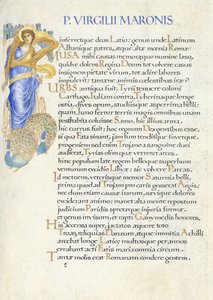 P. VIRGILII MARONIS
inferretque deos Latio: genus unde Latinum
Albanique patres, atque altæ mœnia Romæ
MUSA mihi causas memora: quo numine læso,
quidve dolens Regina Deum tot volvere casus
insignem pietate virum, tot adire labores
impulerit: tantæne animis cælestibus iræ
URBS antiqua fuit: Tyrii tenuere coloni
Carthago, Italiam contra, Tyberinaque longe
ostia, dives opum, studiisque asperrima belli:
quam Juno fertur terris magis omnibus unam
posthabita coluisse Samo: hic illius arma,
hic currus fuit: hoc regnum Dea gentibus esse,
si qua Fata sinant, jam tum tenditque fovetque.
Progeniem sed enim Trojano a sanguine duci
audierat, Tyrias olim quæ verteret arces:
hinc populum late regem belloque superbum
venturum excidio Libyæ: sic volvere Parcas.
Id metuens, veterisque memor Saturnia belli
prima quod ad Trojam pro caris gesserat Argis:
necdum etiam causæ irarum, sævique dolores
exciderant animo: manet alta mente repostum
judicium Paridis spretæque injuria formæ,
et genus invisum, et rapti Ganymedis honores,
His accensa super, jactatos æquore toto
Troas, reliquias Danaum atque immitis Achilli
arcebat longe Latio: multosque per annos
errabant acti Fatis maria omnia circum
Tantæ molis erat Romanam condere gentem.